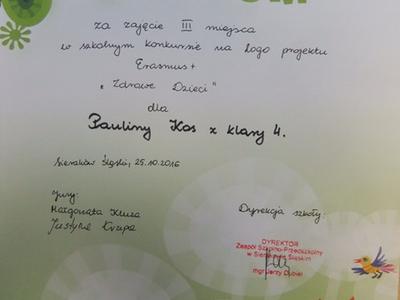 za zajęcie III miejsca
w szkolnym konkursie na logo projektu
Erasmus+
„Zdrowe Dzieci"
dla
Pauliny Kos z klasy 4.
Sieraków Śląski, 25.10.2016
Jury:
Małgorzata Kluza
Justyna Krupa
Dyrekcja szkoły:
DYREKTOR
Zespół Szkolno-Przedszkolny
w Sierakowie Śląskim
mgr Jerzy